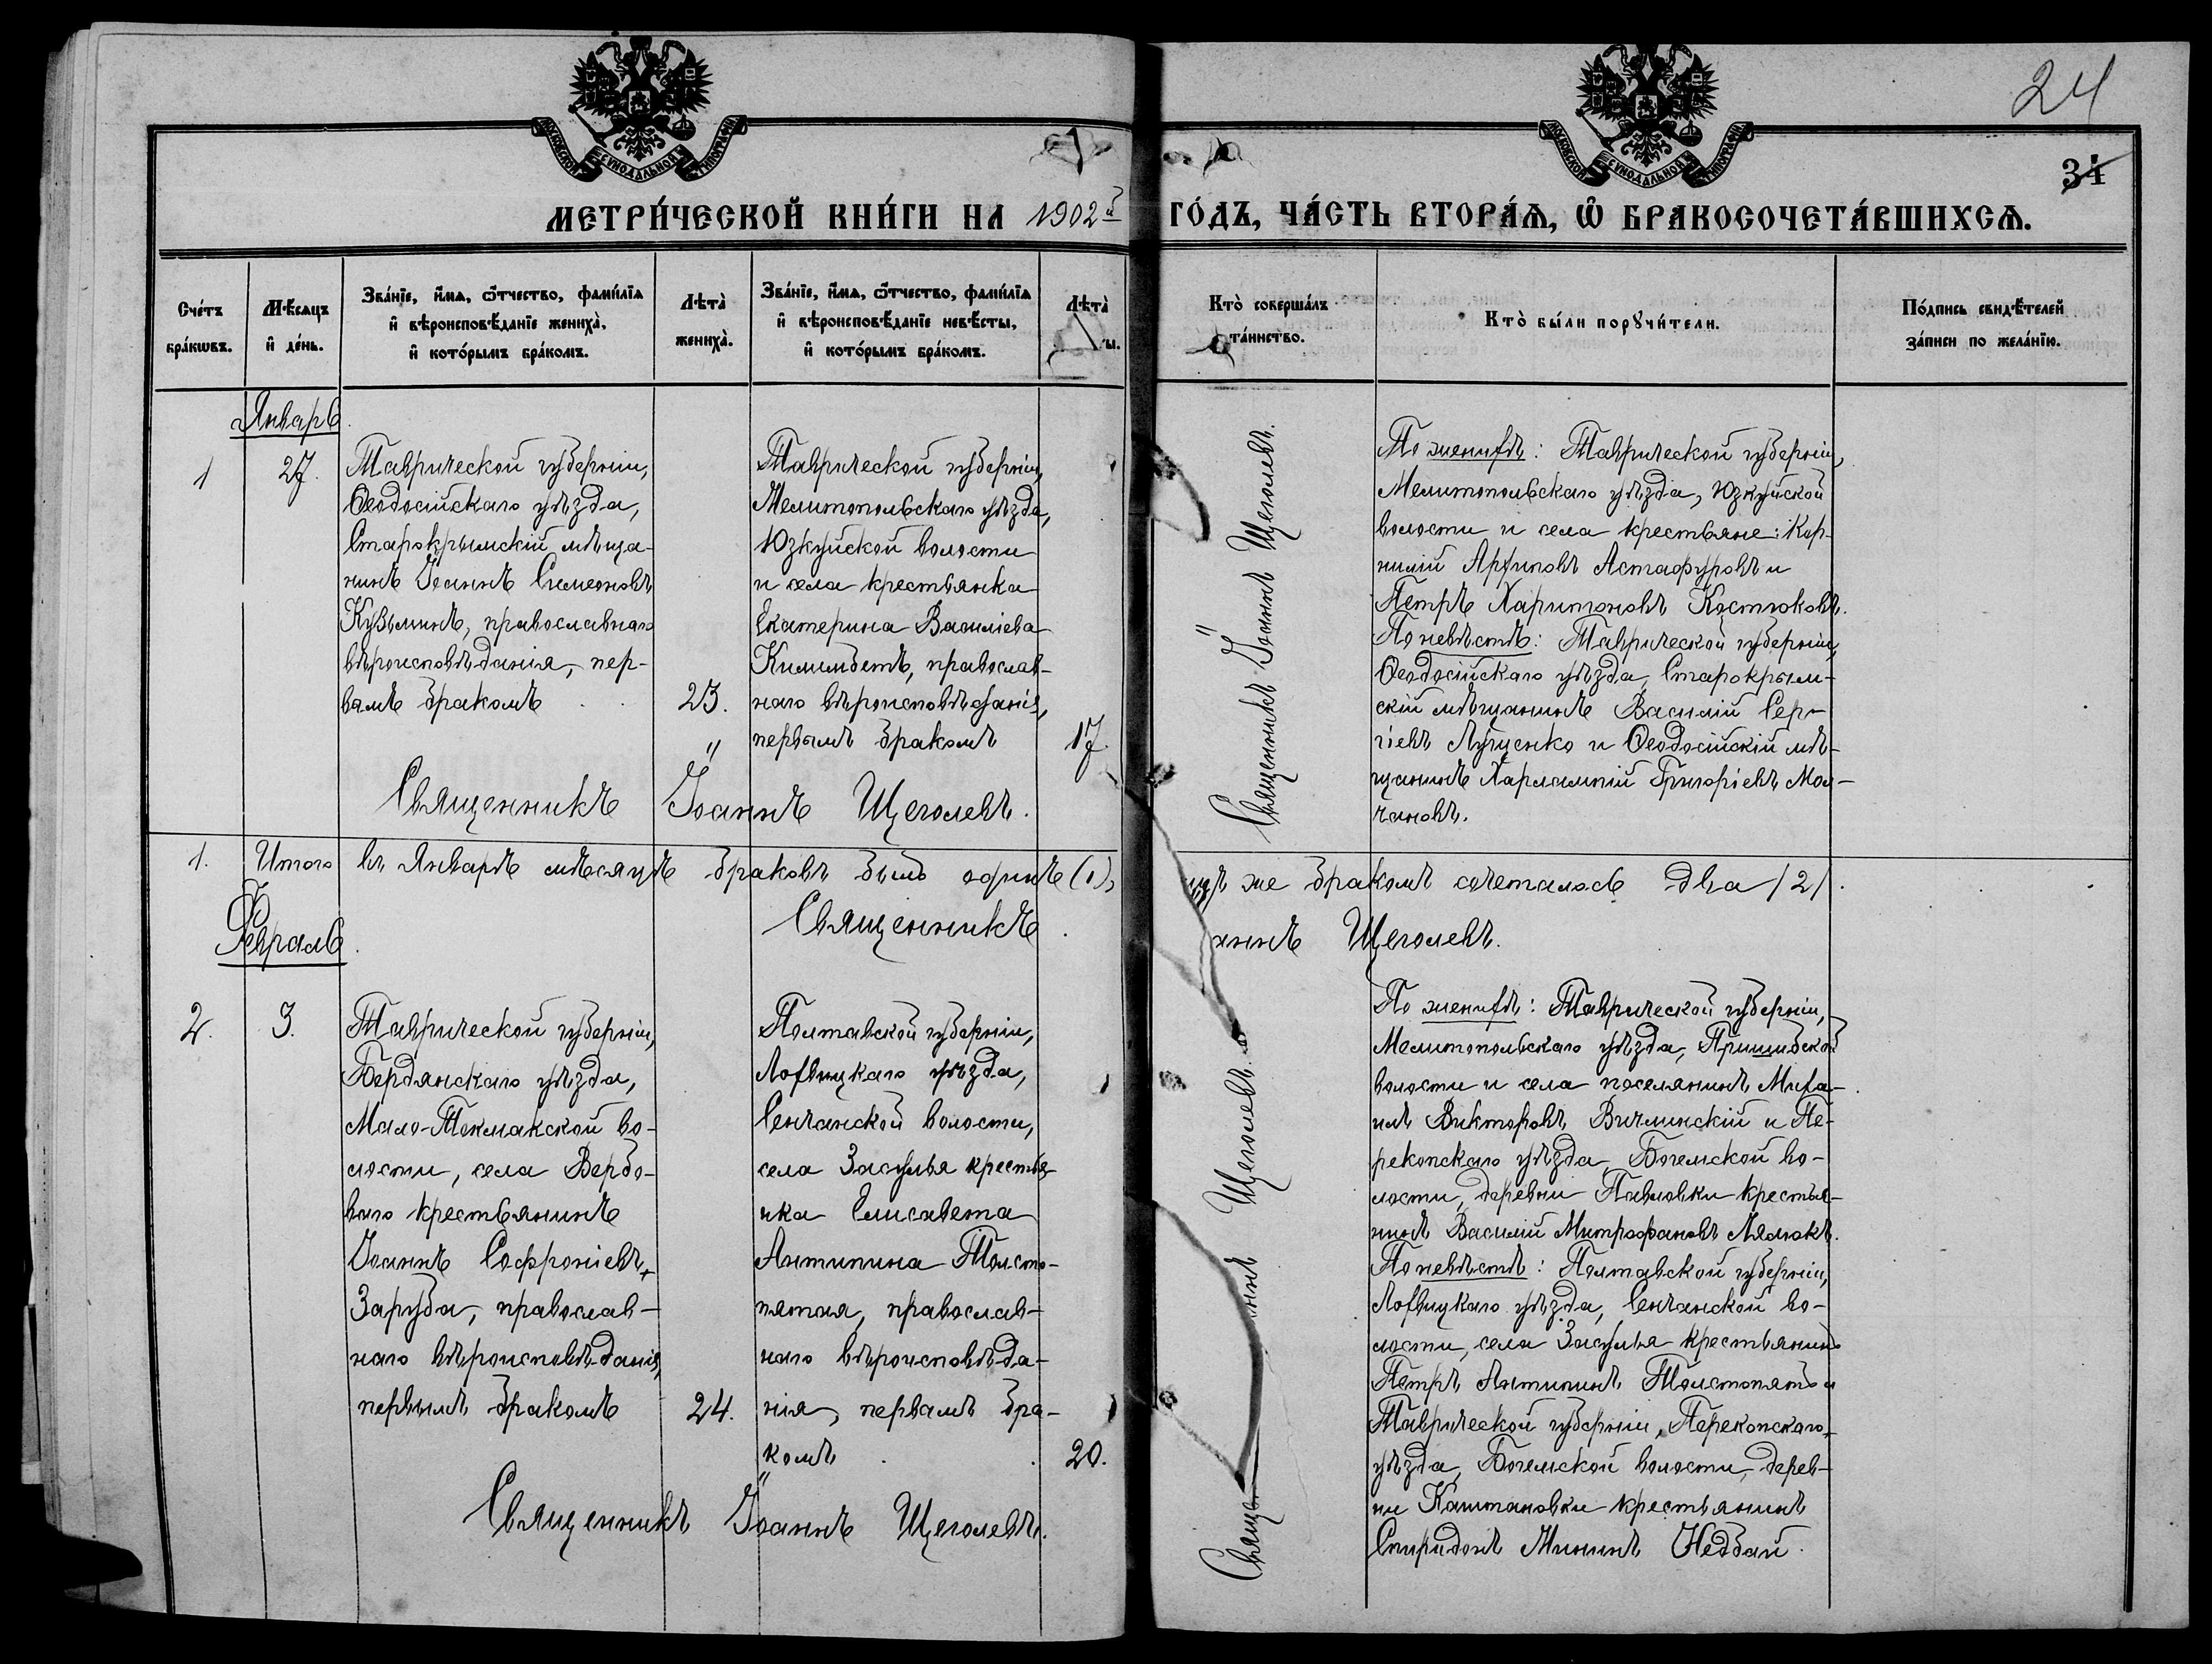 24
34
МОСКОВСКОЙ СѴНОДАЛЬНОЙ ТИПОГРАФІИ
МОСКОВСКОЙ СѴНОДАЛЬНОЙ ТИПОГРАФІИ
МЕТРИ́ЧЕСКОЙ КНИ́ГИ НА 1902й ГО́ДЪ, ЧА́СТЬ ВТОРА́Ѧ, Ѽ БРАКОСОЧЕТА́ВШИХСѦ.
Сче́тъ бра́кѡвъ.
Мѣ́сяцъ и де́нь.
Зва́нїе, и҆́мѧ, ѻ҆́тчество, фами́лїѧ
и҆ вѣроисповѣ́данїе женихà,
и҆ кото́рымъ бра́комъ.
Лѣтà женихà.
Зва́нїе, и҆́мѧ, ѻ҆́тчество, фами́лїѧ
и҆ вѣроисповѣ́данїе невѣ́сты,
и҆ кото́рымъ бра́комъ.
Лѣтà
Ктò соверша́лъ
та́инство.
Ктò бы́ли порꙋчи́тели.
По́дпись свидѣ́телей
за́писи по жела́нїю.
Январь
1
27.
Таврической губерніи,
Ѳеодосійскаго уѣзда,
Старокрымскій мѣща-
нинъ Іоаннъ Симеоновъ
Кузьминъ, православнаго
вѣроисповѣданія, пер-
вымъ бракомъ
23.
Таврической губерніи,
Мелитопольскаго уѣзда,
Юзкуйской волости
и села крестьянка
Екатерина Василіева
православ-
наго вѣроисповѣданія,
первымъ бракомъ
17.
Священникъ Іоаннъ Щеголевъ.
Священникъ Іоаннъ Щеголевъ.
По женихѣ: Таврической губерніи,
Мелитопольскаго уѣзда, Юзкуйской
волости и села крестьяне: Кор-
нилій Архиповъ Астафуровъ и
Петръ Харитоновъ Костюковъ.
По невѣстѣ: Таврической губерніи,
Ѳеодосійскаго уѣзда, Старокрым-
скій мѣщанинъ Василій Сер-
гіевъ Луценко и Ѳеодосійскій мѣ-
щанинъ Харлампій Григоріевъ Мол-
чановъ.
1. Итого въ Январѣ мѣсяцѣ браковъ было одинъ (1), же бракомъ сочеталось два /2/.
Священникъ Щеголевъ.
Февраль
2.
3.
Таврической губерніи,
Бердянскаго уѣзда,
Мало-Токмакской во-
лости, села Вербо-
ваго крестьянинъ
Іоаннъ Софроніевъ
Заруба, православ-
наго вѣроисповѣданія,
первымъ бракомъ
24.
Полтавской губерніи,
Лохвицкаго уѣзда,
Сенчанской волости,
села Засулья крестья-
нка Елисавета
Антипина Толсто-
пятая, православ-
наго вѣроисповѣда-
нія, первымъ бра-
комъ
20.
Священникъ Іоаннъ Щеголевъ.
Щеголевъ.
По женихѣ: Таврической губерніи,
Мелитопольскаго уѣзда, Пришибской
волости и села поселянинъ Миха-
илъ Викторовъ Вичлинскій и Пе-
рекопскаго уѣзда, Богемской во-
лости, деревни Павловки крестья-
нинъ Василій Митрофановъ Лялюкъ.
По невѣстѣ: Полтавской губерніи,
Лохвицкаго уѣзда, Сенчанской во-
лости, села Засулья крестьянинъ
Петръ Антипинъ Толстопятъ и
Таврической губерніи, Перекопскаго
уѣзда, Богемской волости, дерев-
ни Каштановки крестьянинъ
Спиридонъ Мининъ Недбай.